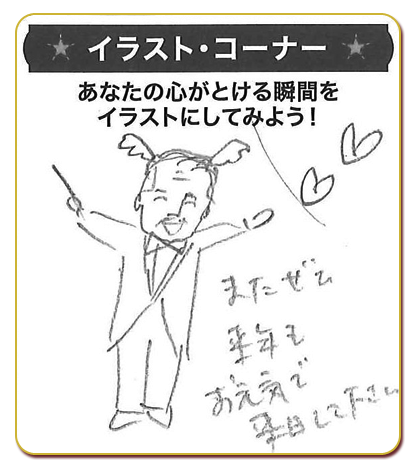 イラスト・コーナー
あなたの心がとける瞬間を
イラストにしてみよう!
またぜひ
来年も
お元気で
来日して下さい